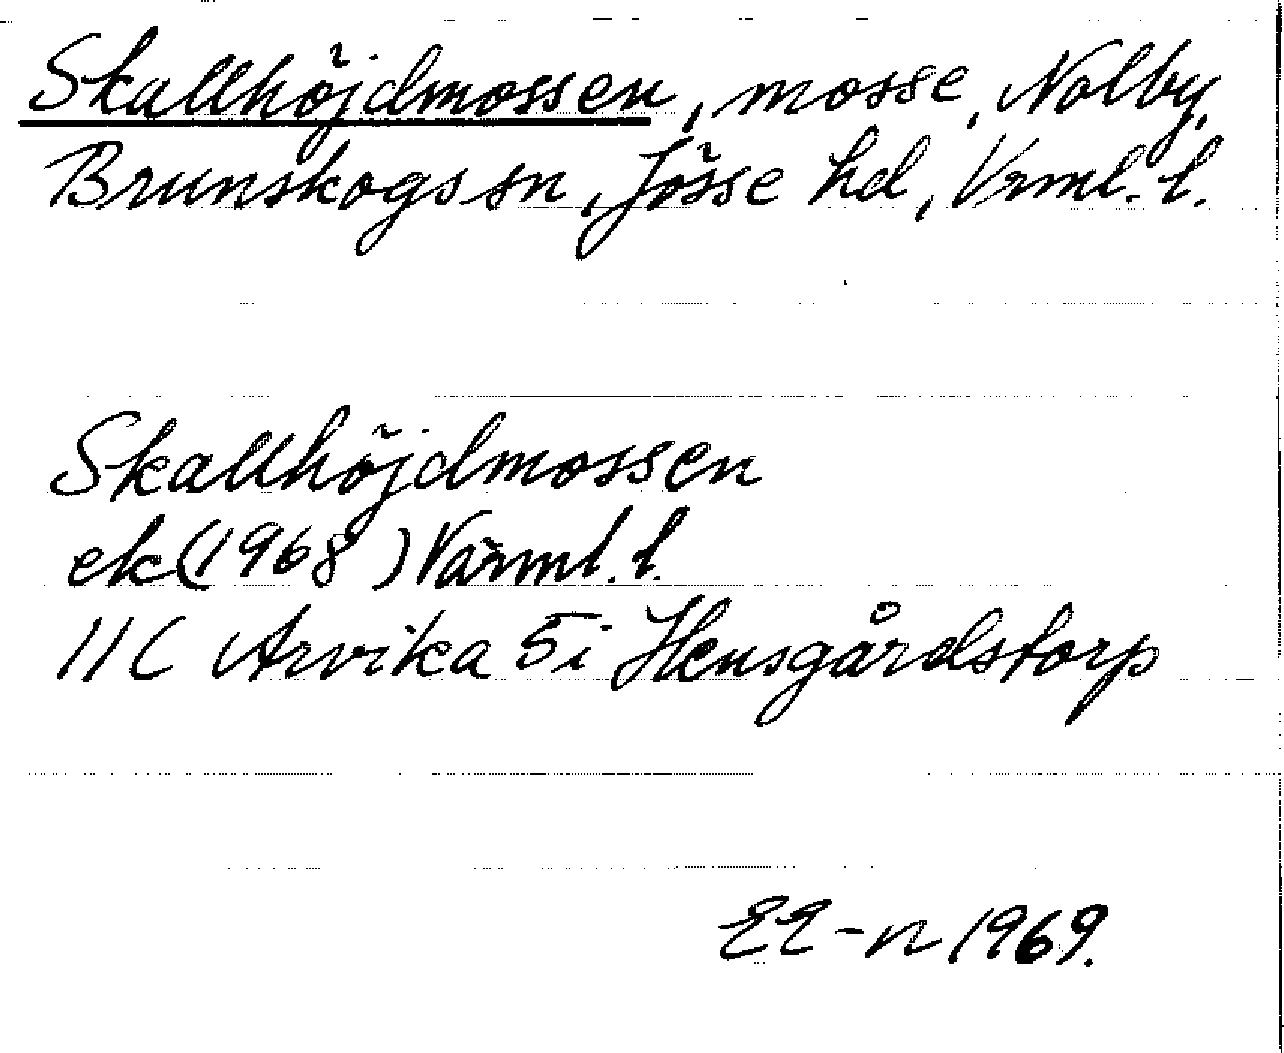 Skallhöjdmossen, mosse, Nolby,
Brunskogs sn, Jösse hd, Vrml. l.
Skallhöjdmossen
ek (1968) Värml. l.
11C Arvika 5i Hensgårdstorp
EE-n 1969.